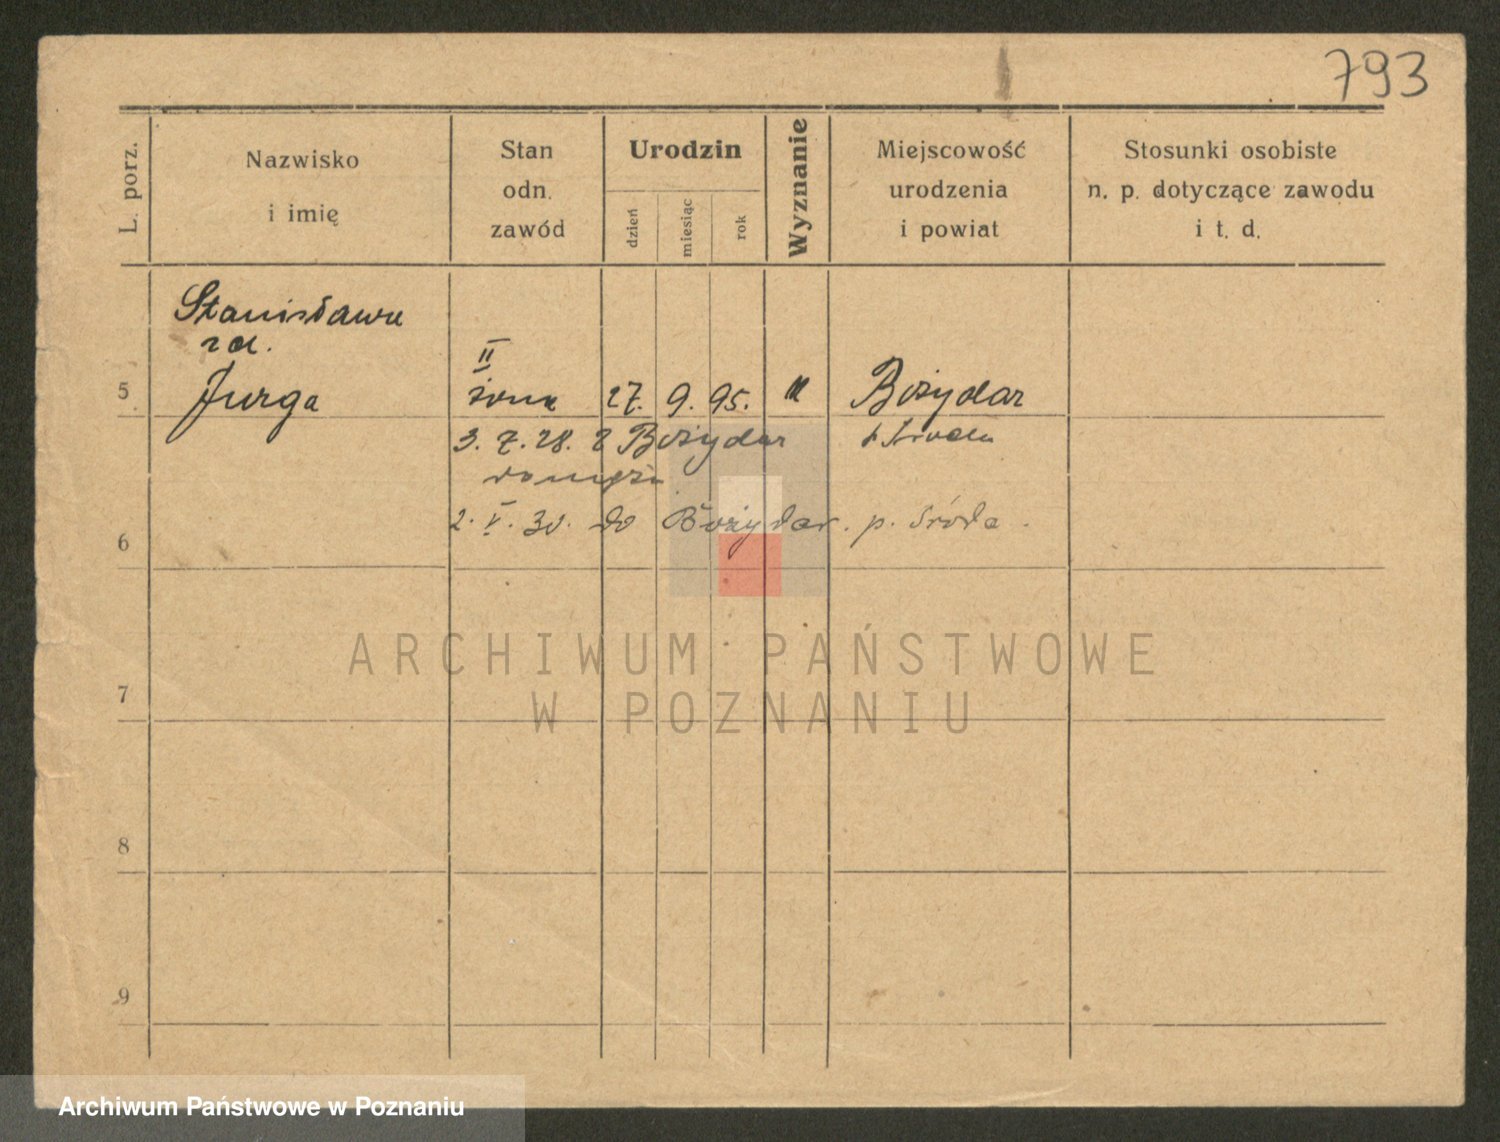 793
L. porz.
Nazwisko
i imię
Stan
odn.
zawód
Urodzin
dzień
miesiąc
rok
Wyznanie
Miejscowość
urodzenia
i powiat
Stosunki osobiste
n. p. dotyczące zawodu
i t. d.
Stanisława
zd.
5 Jurga II żona 27. 9. 95. Bożydar
3. 7. 28. z Bożydar
2. V. 30. do Bożydar. p. Środa.
6
7
8
9
ARCHIWUM PAŃSTWOWE
W POZNANIU
Archiwum Państwowe w Poznaniu